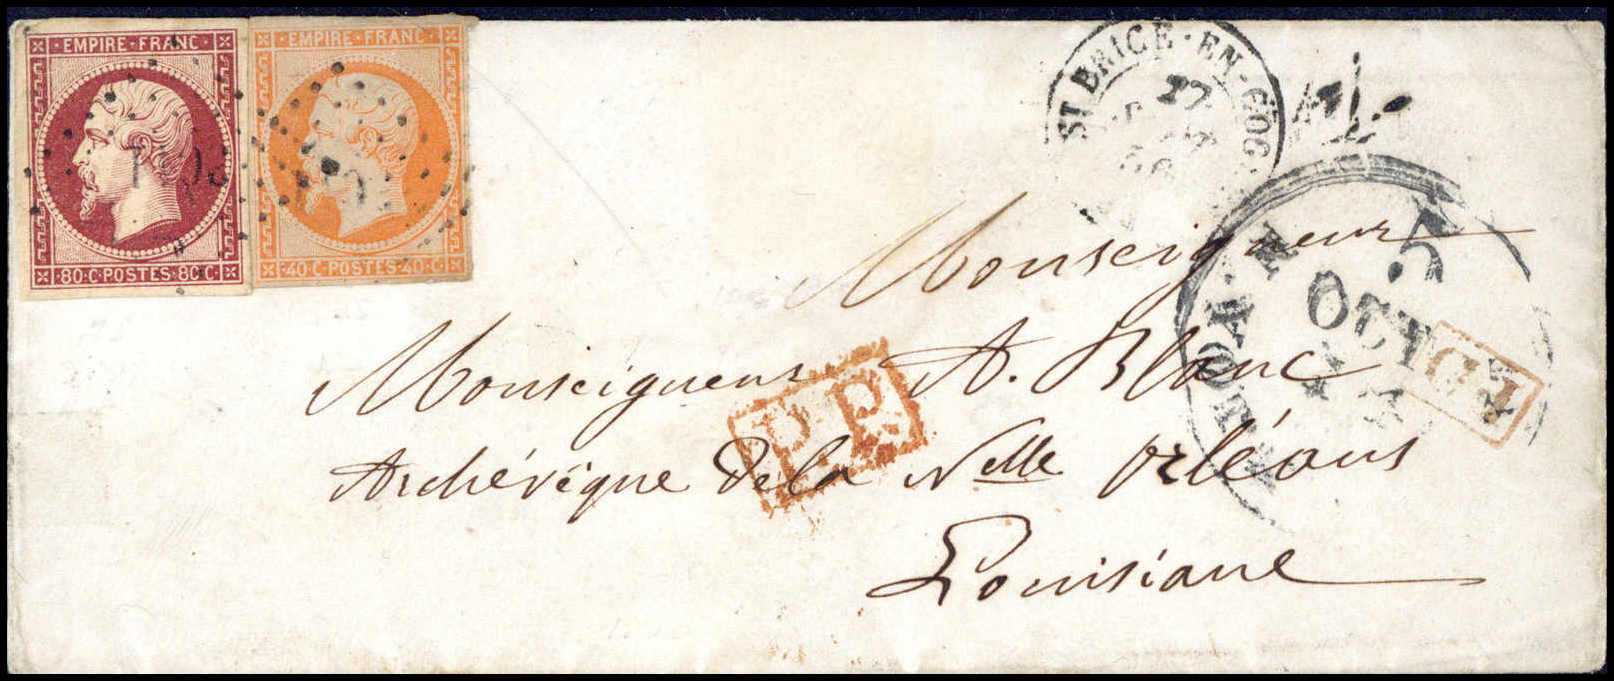 EMPIRE · FRANC
80 · C · POSTES · 80 C ·
EMPIRE · FRANC ·
· 40 · C · POSTES · 40 · C ·
ST BRICE · EN · COG
27
Monseigneur
Monseigneur A. Blanc
Archévêque de la Nlle Orléans
Louisiane
P.P.
5
OCT